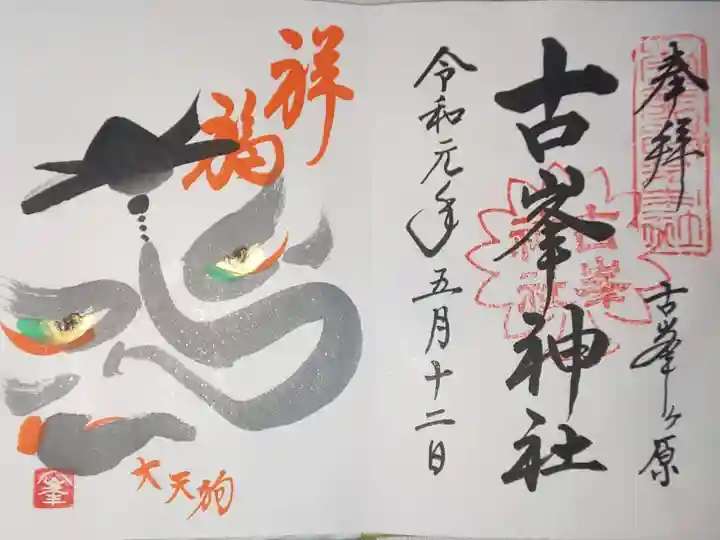 奉拝
古峯ヶ原
古峯神社
古峯
神社
令和元年五月十二日
祥福
大天狗
峯